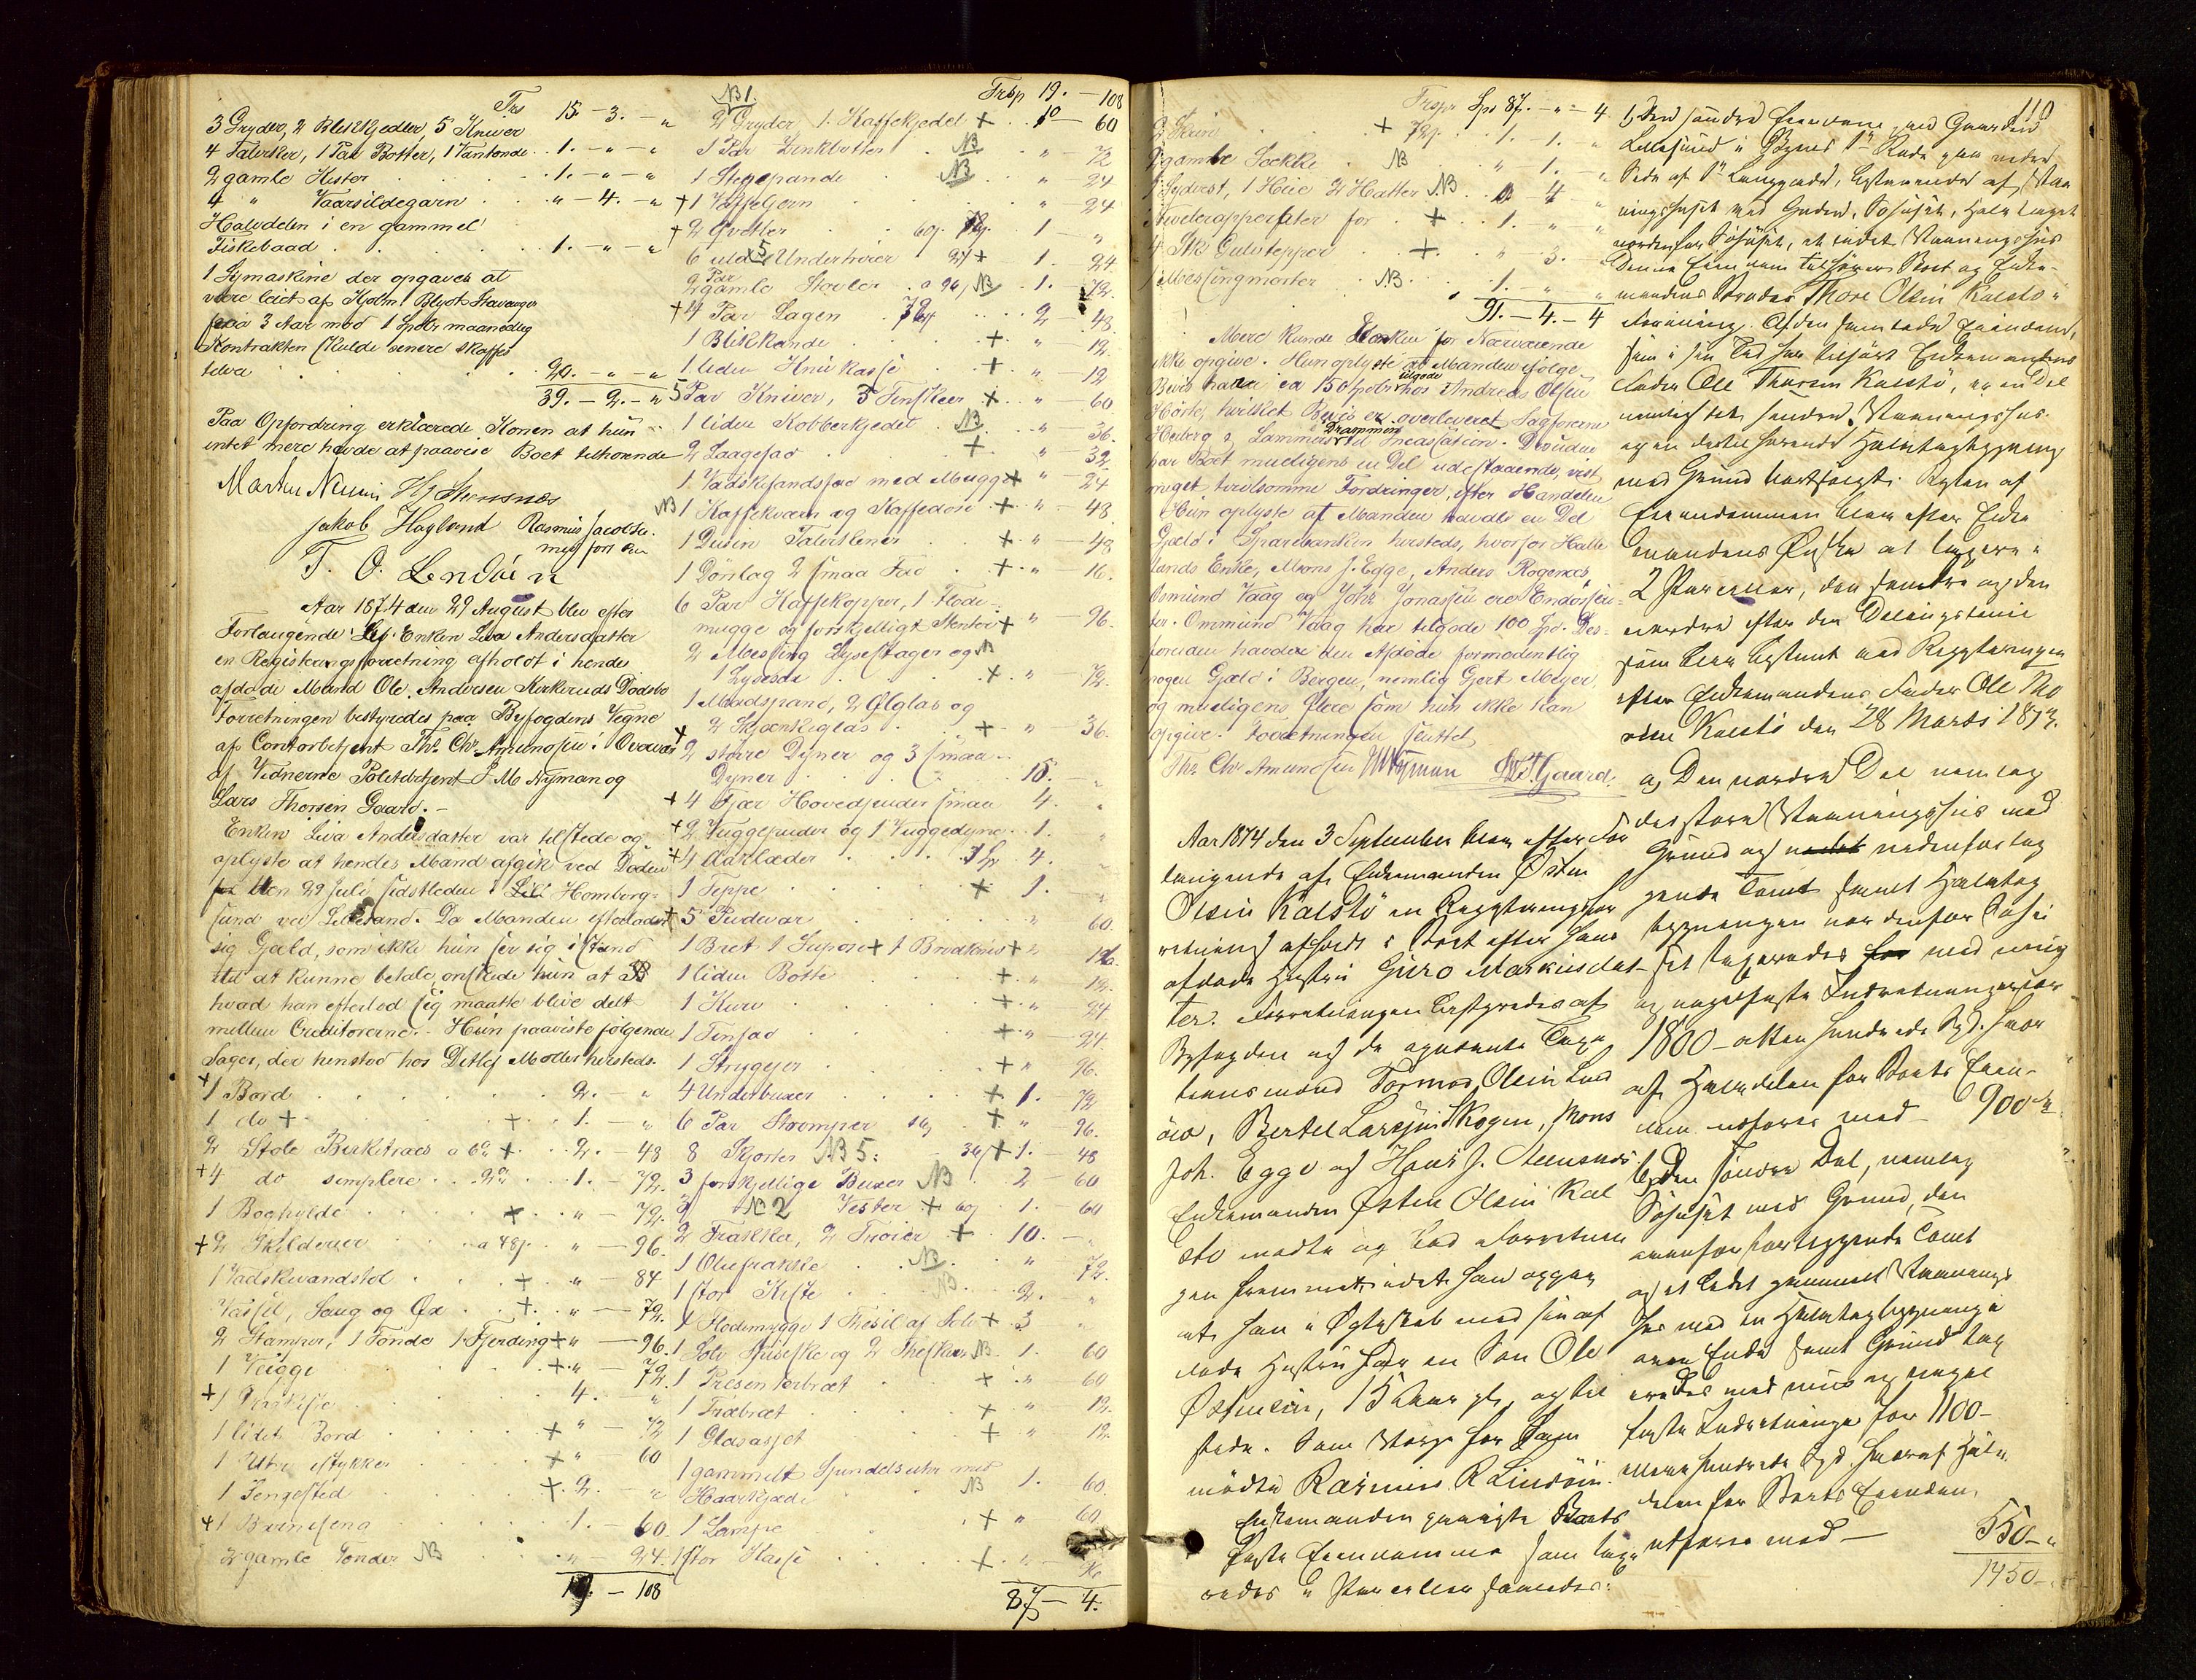 Trs 15. - 3. - "
3 Gryder, 2 Blekkjedler, 5 Kniver
4 Talerker, 1 Par Botter, 1 Vantonde . . 1. - " - "
2 gamle Kister . . . 1. - " - "
4 " Vaarsildegarn . . . " - 4. - "
Halvdelen i en gammel
Fiskebaad . . . 1. - " - "
1 Symaskine der opgaves at
være leiet af Kjøbm. Blyst Stavanger
paa 3 Aar mod 1 Spdlr maanedlig
Kontrakten skulde senere skaffes
tilveie . . . 20. - " - "
39. - 2. - "
Paa Opfordring erklærede Konen at hun
intet mere havde at paavise Boet tilhørende
H. J. Steensnæs
Jakob Hagland Rasmus Jacobsen
med fort Pen
T. O. Lindøen
Aar 1874 den 29 August blev efter
Forlangende af Enken Liva Andersdatter
en Registeringsforretning afholdt i hendes
afdøde Mand Ole Andersen Kirkeruds Dødsbo
Forretningen bestyredes paa Byfogdens Vegne
af Contorbetjent Ths. Chr. Amundsen i Overvær
af Vidnerne Politibetjent P. M. Nyman og
Lars Thorsen Gaard. -
Enken Liva Andersdatter var tilstede og
oplyste at hendes Mand afgik ved Døden
den 29 Juli sidstleden i Homborg-
sund ved Lillesand. Da Manden efterlader
sig Gjæld, som ikke hun ser sig i Stand
til at kunne betale, ønskede hun at
hvad han efterlod sig maatte blive delt
mellem Creditorerne. - Hun paaviste følgende
Sager, der henstod hos Detlef Møller hersteds.
+ 1 Bord . . . 2. - "
1 do + . . . + . 1. - "
2 Stole Birketræes a 6 + . . 2. - 48
+ 4 do simplere . . . 1. - 72.
1 Boghylde . . . + . . " - 72.
+ 2 Skilderier . . a 48 . " - 96.
1 Vadskevandstol . . . + . " - 84
Vassel, Saug og Øx . . + . . " - 72.
2 Stamper, 1 Tønde 1 Fjerding + " - 96.
1 Vugge . . . + . " - 72.
+ 1 . . . 4. - "
1 lidet Bord . . . + " - 72
1 . . . + " 60
1 Sengested . . . + . 2. "
+ 1 Barneseng . . . 1. - 60.
2 gamle Tønder NB . . . " - 24.
19. - 108
NB 1. Trsp 19. - 108
2 Gryder, 1 Kaffekjedel + . . " - 60
1 Par Zinkbøtter . NB . " - 72
1 Stegepande . NB . " - 24
+ 1 Vaffeljern . . . " - 24
+ 2 Gryder . . . 1 - "
6 uld Undertrøier + . 1. 24
2 Par gamle Støvler . a 96 NB . 1. - 72.
+ 4 Par Lagen . . . . 2 - 48
1 Blikkande . . . + . " - 12
1 liden Knivkasse . . + . " - 12
5 Par Kniver, 3 Theskeer + . . " - 60.
1 liden Kobberkjedel . NB . . " - 36.
2 Saagefad . . . + . " - 32
1 Vadskevandsfad med Mugge + " - 24
NB 1 Kaffekværn og Kaffedose . + . " - 48
1 Dusin Talerkener . . + . " - 48
1 Dørslag 2 smaa Fad . + . " - 16.
6 Par Kaffekopper, 1 Fløde-
mugge og forskjelligt Stentøi + " - 96.
2 Messing Lysestager og NB
1 Lysesax . . . + . " - 72.
1 Madspand, 2 Ølglas og
+ 2 Skjænkeglas . . . + . " 36.
2 større Dyner og 3 smaa
Dyner . . . 15. - "
+ 4 Fjær Hovedpuder smaa 4. "
+ 2 Vuggepuder og 1 Vuggedyne . 1. "
+ 4 Aarlæder . . . 4. "
1 Teppe . . . + . 1. "
+ 5 Pudevar . . . " 60.
1 Bret 1 + 1 Brødkniv + " 16.
1 liden Bøtte . . . + . " 12.
1 Kurv . . . + . " 24
1 Tinfad . . . + . " - 24.
1 Strygejern . . . + " 96.
4 Underbuxer . . + 1. - 72
6 Par Strømper + . " - 96.
8 Skjorter NB 5. + 1. - 48
3 forskjellige Buxer NB . 2 - 60
3 N 2 Vester + . 1. - 60
2 Frakker, 2 Trøier + . 10. - "
1 Oliefrakke . . NB . . " - 72.
1 stor Kiste . . NB . . 2. - "
1 Flødemugge 1 Thesil af Sølv + . 3 "
1 Sølv Spiseske og 2 Theskeer NB . 1. 60
1 Presenterbræt . . + . " 60
1 Træbræt . . . + " 12.
1 Glasasjet . . . + . " 12.
1 gammelt Spindelsuhr med
Haarkjæde . . NB 1. 60.
1 Lampe . . . + " 60
1 stor Kasse . . . +
87 - 4.
110
Trspr Spd 87. - " - 4
2 Skrin . . + . . 1. 1. "
2 gamle Sække . NB . " 1. - "
1 Sydvest, 1 Hue 2 Hatter NB . " 4 - "
for . + . . 1. " "
4 Stk Gulvtepper . + . " 3. "
1 Messingmorter . NB . . 1. " "
91. - 4. - 4
Mere kunde Enken for Nærværende
ikke opgive. Hun oplyste at Manden ifølge
Bevis havde ca 150 Spdlr tilgode hos Andreas Olsen
Hørte, hvilket Bevis er overleveret Sagførerne
Heiberg & Lammers til Incassation. Desuden
har Boet muligens en Del udestaaende, vist
meget tvivlsomme Fordringer, efter Handelen
Hun oplyste at Manden havde en Del
Gjæld i Sparebanken hersteds, hvorfor Halle
lands Enke, Mons J. Egge, Anders Rogenæs,
Osmund Vaag og Johs Jonassen ere Endossen-
ter. Ommund Vaag har tilgode 100 Spd. Des-
foruden havde den Afdøde formodentlig
nogen Gjæld i Bergen, nemlig Gjert Meyer
og muligens flere som hun ikke kan
opgive. Forretningen sluttet
Ths. Chr. Amundsen Nyman L. T. Gaard.
Aar 1874 den 3 September blev efter For
langende af Enkemanden Østen
Olsen Kalstø en Registeringsfor
retning afholdt i Boet efter hans
afdøde Hustru Guro Markusdat-
ter. Forretningen bestyredes af
Byfogden og de opnævnte Taxa
tionsmænd Tormod Olsen Lind
øen, Bertel Larsen Skogen, Mons
Joh. Egge og Hans J. Steensnæs
Enkemanden Østen Olsen Kal
stø mødte og lod Forretnin
gen fremme, idet han opgav
at han i Ægteskab med sin af
døde Hustru har en Søn Ole
Østensen, 15 Aar gl. og til
stede. Som Værge for ham
mødte Rasmus R. Lindøen.
Enkemanden paaviste Boets
faste Eiendomme som taxe
redes i Parceller saaledes:
1, Den søndre Eiendom ved Gaarden
Lillesund i Byens 1ste Rode paa nedre
Side af 1ste Langgade, bestaaende af Vaa
ningshuset med Gaden, Søhuset, Halvtaget
nordenfor Søhuset, et lidet Vaaningshus
Denne Eiendom tilhører Boet og Enke-
mandens Broder Thore Olsen Kalstø i
Forening. Af den samlede Eiendom,
som i sin Tid har tilhørt Enkemandens
Fader Ole Thorsen Kalstø, er en Del
nemlig det søndre Vaaningshus
og en dertil hørende Halvtagbygning
med Grund bortsolgt. Resten af
Eiendommen blev efter Enke
mandens Ønske at taxere i
2 Parceller, den søndre og den
nordre efter den Delingslinie
som blev bestemt ved Registeringen
efter Enkemandens Fader Ole Tho
rsen Kalstø den 28 Marts 1873.
a, Den nordre Del nemlig
det store Vaaningshus med
Grund og nedenforlig
gende Tomt samt Halvtag
bygningen nordenfor Søhu
set taxeredes med muur
og nagelfaste Indretninger for
1800 - atten hundrede Spd. hvor
af Halvdelen for Boets Eien-
dom udføres med - 900 - "
b, Den søndre Del, nemlig
Søhuset med Grund, den
ovenfor liggende Tomt
og et lidet gammelt Vaanings
hus med en Halvtagbygning i
øvre Ende samt Grund tax
eredes med muur og nagel
faste Indretninger for 1100 -
elleve hundrede Spd. hvoraf Halv
delen for Boets Eiendom
udføres med - 550 - "
1450 -